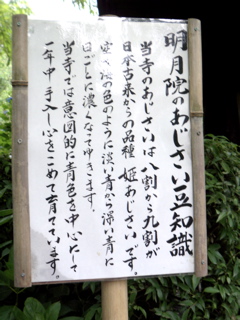 明月院のあじさい豆知識
当寺のあじさいは八割から九割が
日本古来からの品種 姫あじさいです。
実に海の色のように淡い青から深い青に
日ごとに濃くなってゆきます。
当寺では意図的に青色を中心にして
一年中手入し心をこめて育てています。